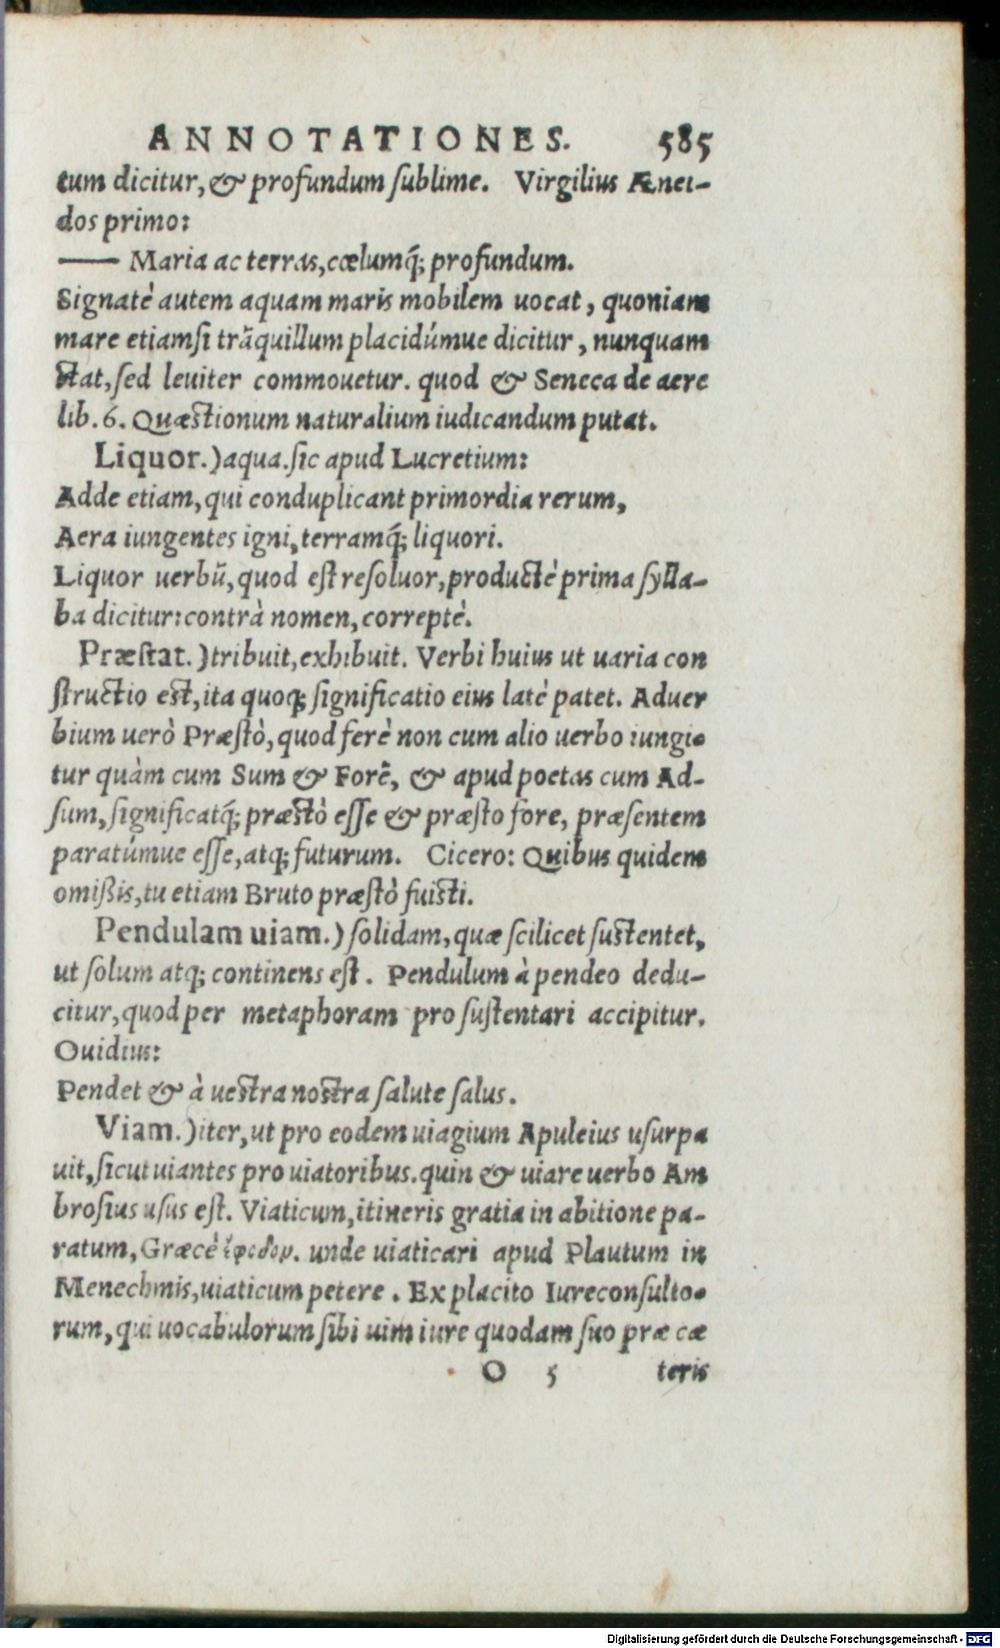 ANNOTATIONES. 585
tum dicitur, & profundum ſublime. Virgilius Ænei-
dos primo:
—— Maria ac terras, cœlumq́; profundum.
Signatè autem aquam maris mobilem uocat, quoniam
mare etiamſi trãquillum placidúmue dicitur, nunquam
ſtat, ſed leuiter commouetur. quod & Seneca de aere
lib. 6. Quæſtionum naturalium iudicandum putat.
Liquor.) aqua. ſic apud Lucretium:
Adde etiam, qui conduplicant primordia rerum,
Aera iungentes igni, terramq́; liquori.
Liquor uerbũ, quod eſt reſoluor, productè prima ſylla-
ba dicitur: contrà nomen, correptè.
Præſtat.) tribuit, exhibuit. Verbi huius ut uaria con
ſtructio eſt, ita quoq; ſignificatio eius latè patet. Aduer
bium uerò Præſtò, quod ferè non cum alio uerbo iungi-
tur quàm cum Sum & Forẽ, & apud poetas cum Ad-
ſum, ſignificatq́; præſtò eſſe & præſto fore, præſentem
paratúmue eſſe, atq; futurum. Cicero: Quibus quidem
omißis, tu etiam Bruto præſtò fuiſti.
Pendulam uiam.) ſolidam, quæ ſcilicet ſuſtentet,
ut ſolum atq; continens eſt. Pendulum à pendeo dedu-
citur, quod per metaphoram pro ſuſtentari accipitur.
Ouidius:
Pendet & à ueſtra noſtra ſalute ſalus.
Viam.) iter, ut pro eodem uiagium Apuleius uſurpa
uit, ſicut uiantes pro uiatoribus. quin & uiare uerbo Am
broſius uſus eſt. Viaticum, itineris gratia in abitione pa-
ratum, Græcè ἐφόδιον. unde uiaticari apud Plautum in
Menechmis, uiaticum petere. Ex placito Iureconſulto-
rum, qui uocabulorum ſibi uim iure quodam ſuo præ cæ
O 5 teris
Digitalisierung gefördert durch die Deutsche Forschungsgemeinschaft - DFG